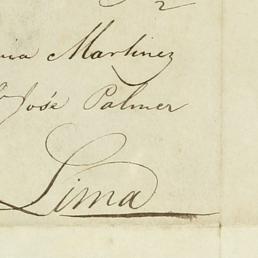 2
Martinez
José Palmer
Lima